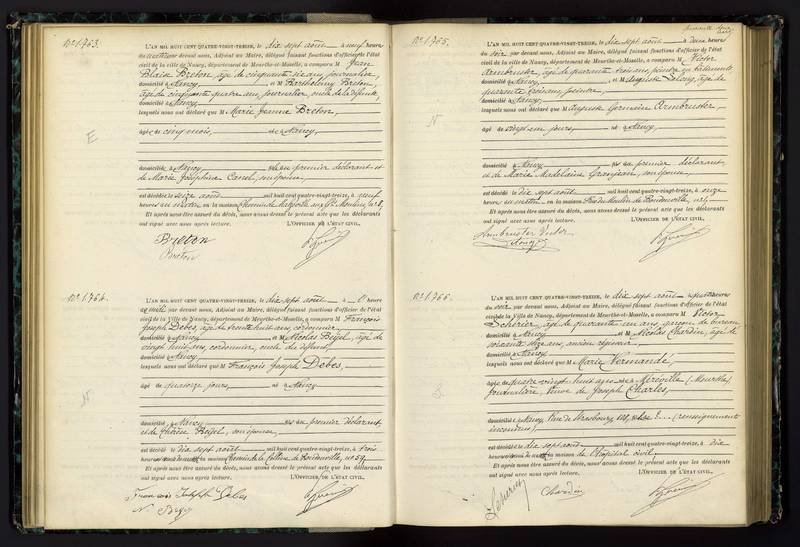 N° 1763.
L'AN MIL HUIT CENT QUATRE-VINGT-TREIZE, le dix sept août à neuf heures
du matin par devant nous, Adjoint au Maire, délégué faisant fonctions d'officier de l'état
civil de la ville de Nancy, département de Meurthe-et-Moselle, a comparu M Jean
Blaise Breton, âgé de cinquante six ans, journalier,
domicilié à Nancy, et M Barthélemy Breton,
âgé de cinquante quatre ans, journalier, oncle de la défunte,
domicilié à Nancy
lesquels nous ont déclaré que M Marie Jeanne Breton,
âgée de cinq mois, née à Nancy,
domiciliée à Nancy fille du premier déclarant et
de Marie Joséphine Canel, son épouse,
est décédée le seize août mil huit cent quatre-vingt-treize, à neuf
heures du matin en la maison
Et après nous être assuré du décès, nous avons dressé le présent acte que les déclarants
ont signé avec nous après lecture. L'OFFICIER DE L'ÉTAT CIVIL,
Breton
Breton
N° 1764.
L'AN MIL HUIT CENT QUATRE-VINGT-TREIZE, le dix sept août à heures
par devant nous, Adjoint au Maire, délégué faisant fonctions d'officier de l'état
civil de la ville de Nancy, département de Meurthe-et-Moselle, a comparu M François
Joseph Debes, âgé de trente huit ans, cordonnier,
domicilié à Nancy et M Nicolas Beyel, âgé de
vingt huit ans, cordonnier, oncle du défunt,
domicilié à Nancy
lesquels nous ont déclaré que M François Joseph Debes,
âgé de quatorze jours, né à Nancy
domicilié à Nancy fils du premier déclarant
et de Thérèse Beyel, son épouse,
est décédé le dix sept août mil huit cent quatre-vingt-treize, à trois
heures du matin en la maison de la Colline de Boudonville, n° 59,
Et après nous être assuré du décès, nous avons dressé le présent acte que les déclarants
ont signé avec nous après lecture. L'OFFICIER DE L'ÉTAT CIVIL,
François Joseph Debes
N. Beyel
N° 1765.
L'AN MIL HUIT CENT QUATRE-VINGT-TREIZE, le dix sept août à deux heures
du soir par devant nous, Adjoint au Maire, délégué faisant fonctions d'officier de l'état
civil de la ville de Nancy, département de Meurthe-et-Moselle, a comparu M Victor
Armbruster, âgé de quarante trois ans, peintre en bâtiments
domicilié à Nancy et M Auguste Lelong, âgé de
quarante trois ans, peintre,
domicilié à Nancy
lesquels nous ont déclaré que M Auguste Germaine Armbruster,
âgé de vingt un jours, né à Nancy,
domicilié à Nancy fils du premier déclarant
et de Marie Madelaine Grosjean, son épouse,
est décédé le dix sept août mil huit cent quatre-vingt-treize, à onze
heures du matin en la maison Rue du Moulin de Boudonville, n° 1,
Et après nous être assuré du décès, nous avons dressé le présent acte que les déclarants
ont signé avec nous après lecture. L'OFFICIER DE L'ÉTAT CIVIL,
Armbruster Victor
N° 1766.
L'AN MIL HUIT CENT QUATRE-VINGT-TREIZE, le dix sept août à quatre heures
du soir par devant nous, Adjoint au Maire, délégué faisant fonctions d'officier de l'état
civil de la ville de Nancy, département de Meurthe-et-Moselle, a comparu M Victor
âgé de quarante un ans, garçon de bureau
domicilié à Nancy et M Nicolas Chardin, âgé de
soixante seize ans, ancien régisseur
domicilié à Nancy
lesquels nous ont déclaré que M Marie Vermande,
âgée de quatre vingt huit ans née à Méréville (Meurthe),
journalière, veuve de Joseph Charles,
domiciliée à Nancy, Rue de Strasbourg, 128, (renseignements
inconnus)
est décédée le dix sept août mil huit cent quatre-vingt-treize, à dix
heures du matin en la maison de l'hôpital civil,
Et après nous être assuré du décès, nous avons dressé le présent acte que les déclarants
ont signé avec nous après lecture. L'OFFICIER DE L'ÉTAT CIVIL,
Chardin